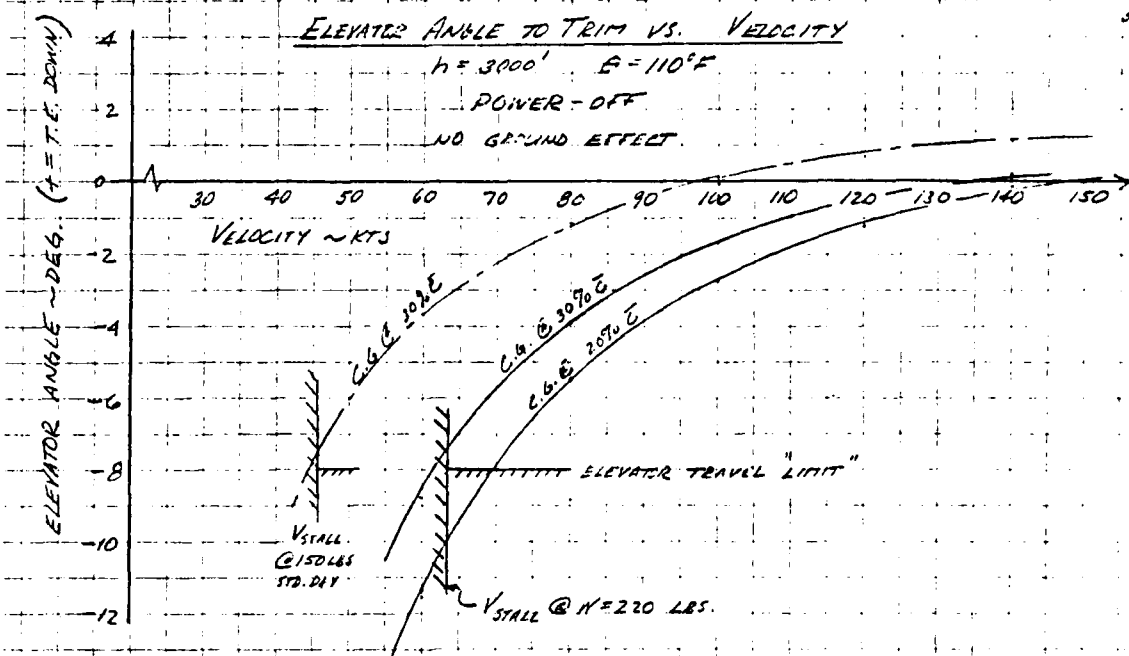 ELEVATOR ANGLE TO TRIM VS. VELOCITY
h = 3000' @ = 110°F
POWER-OFF
NO GROUND EFFECT.
ELEVATOR ANGLE ~ DEG. (+ = T.E. DOWN)
4
2
0
-2
-4
-6
-8
-10
-12
30 40 50 60 70 80 90 100 110 120 130 140 150
VELOCITY ~ KTS
C.G @ 30% C̄
C.G. @ 30% C̄
C.G. @ 20% C̄
ELEVATOR TRAVEL "LIMIT"
VSTALL
@ 150 LBS
STD. DAY
VSTALL @ W = 220 LBS.